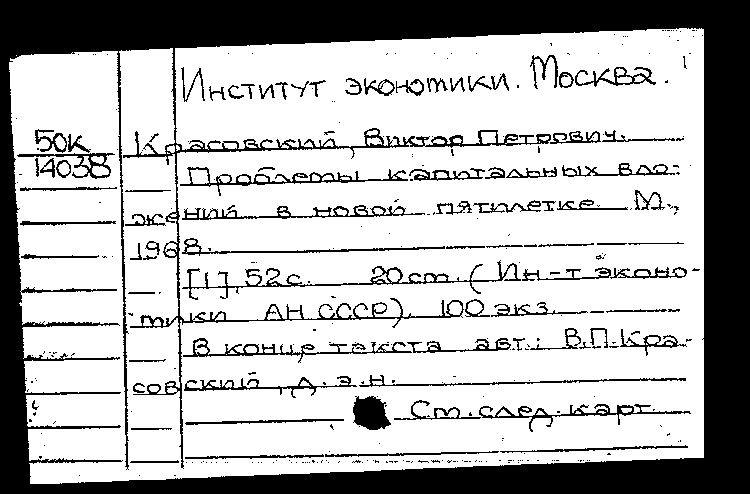 Институт экономики. Москва.
50К Красовский, Виктор Петрович.
14038 Проблемы капитальных вло-
жений в новой пятилетке М.,
1968.
[1], 52 с. 20 см. (Ин-т эконо-
мики АН СССР). 100 экз.
В конце текста авт.: В.П.Кра-
совский, д.э.н.
См. след. карт.